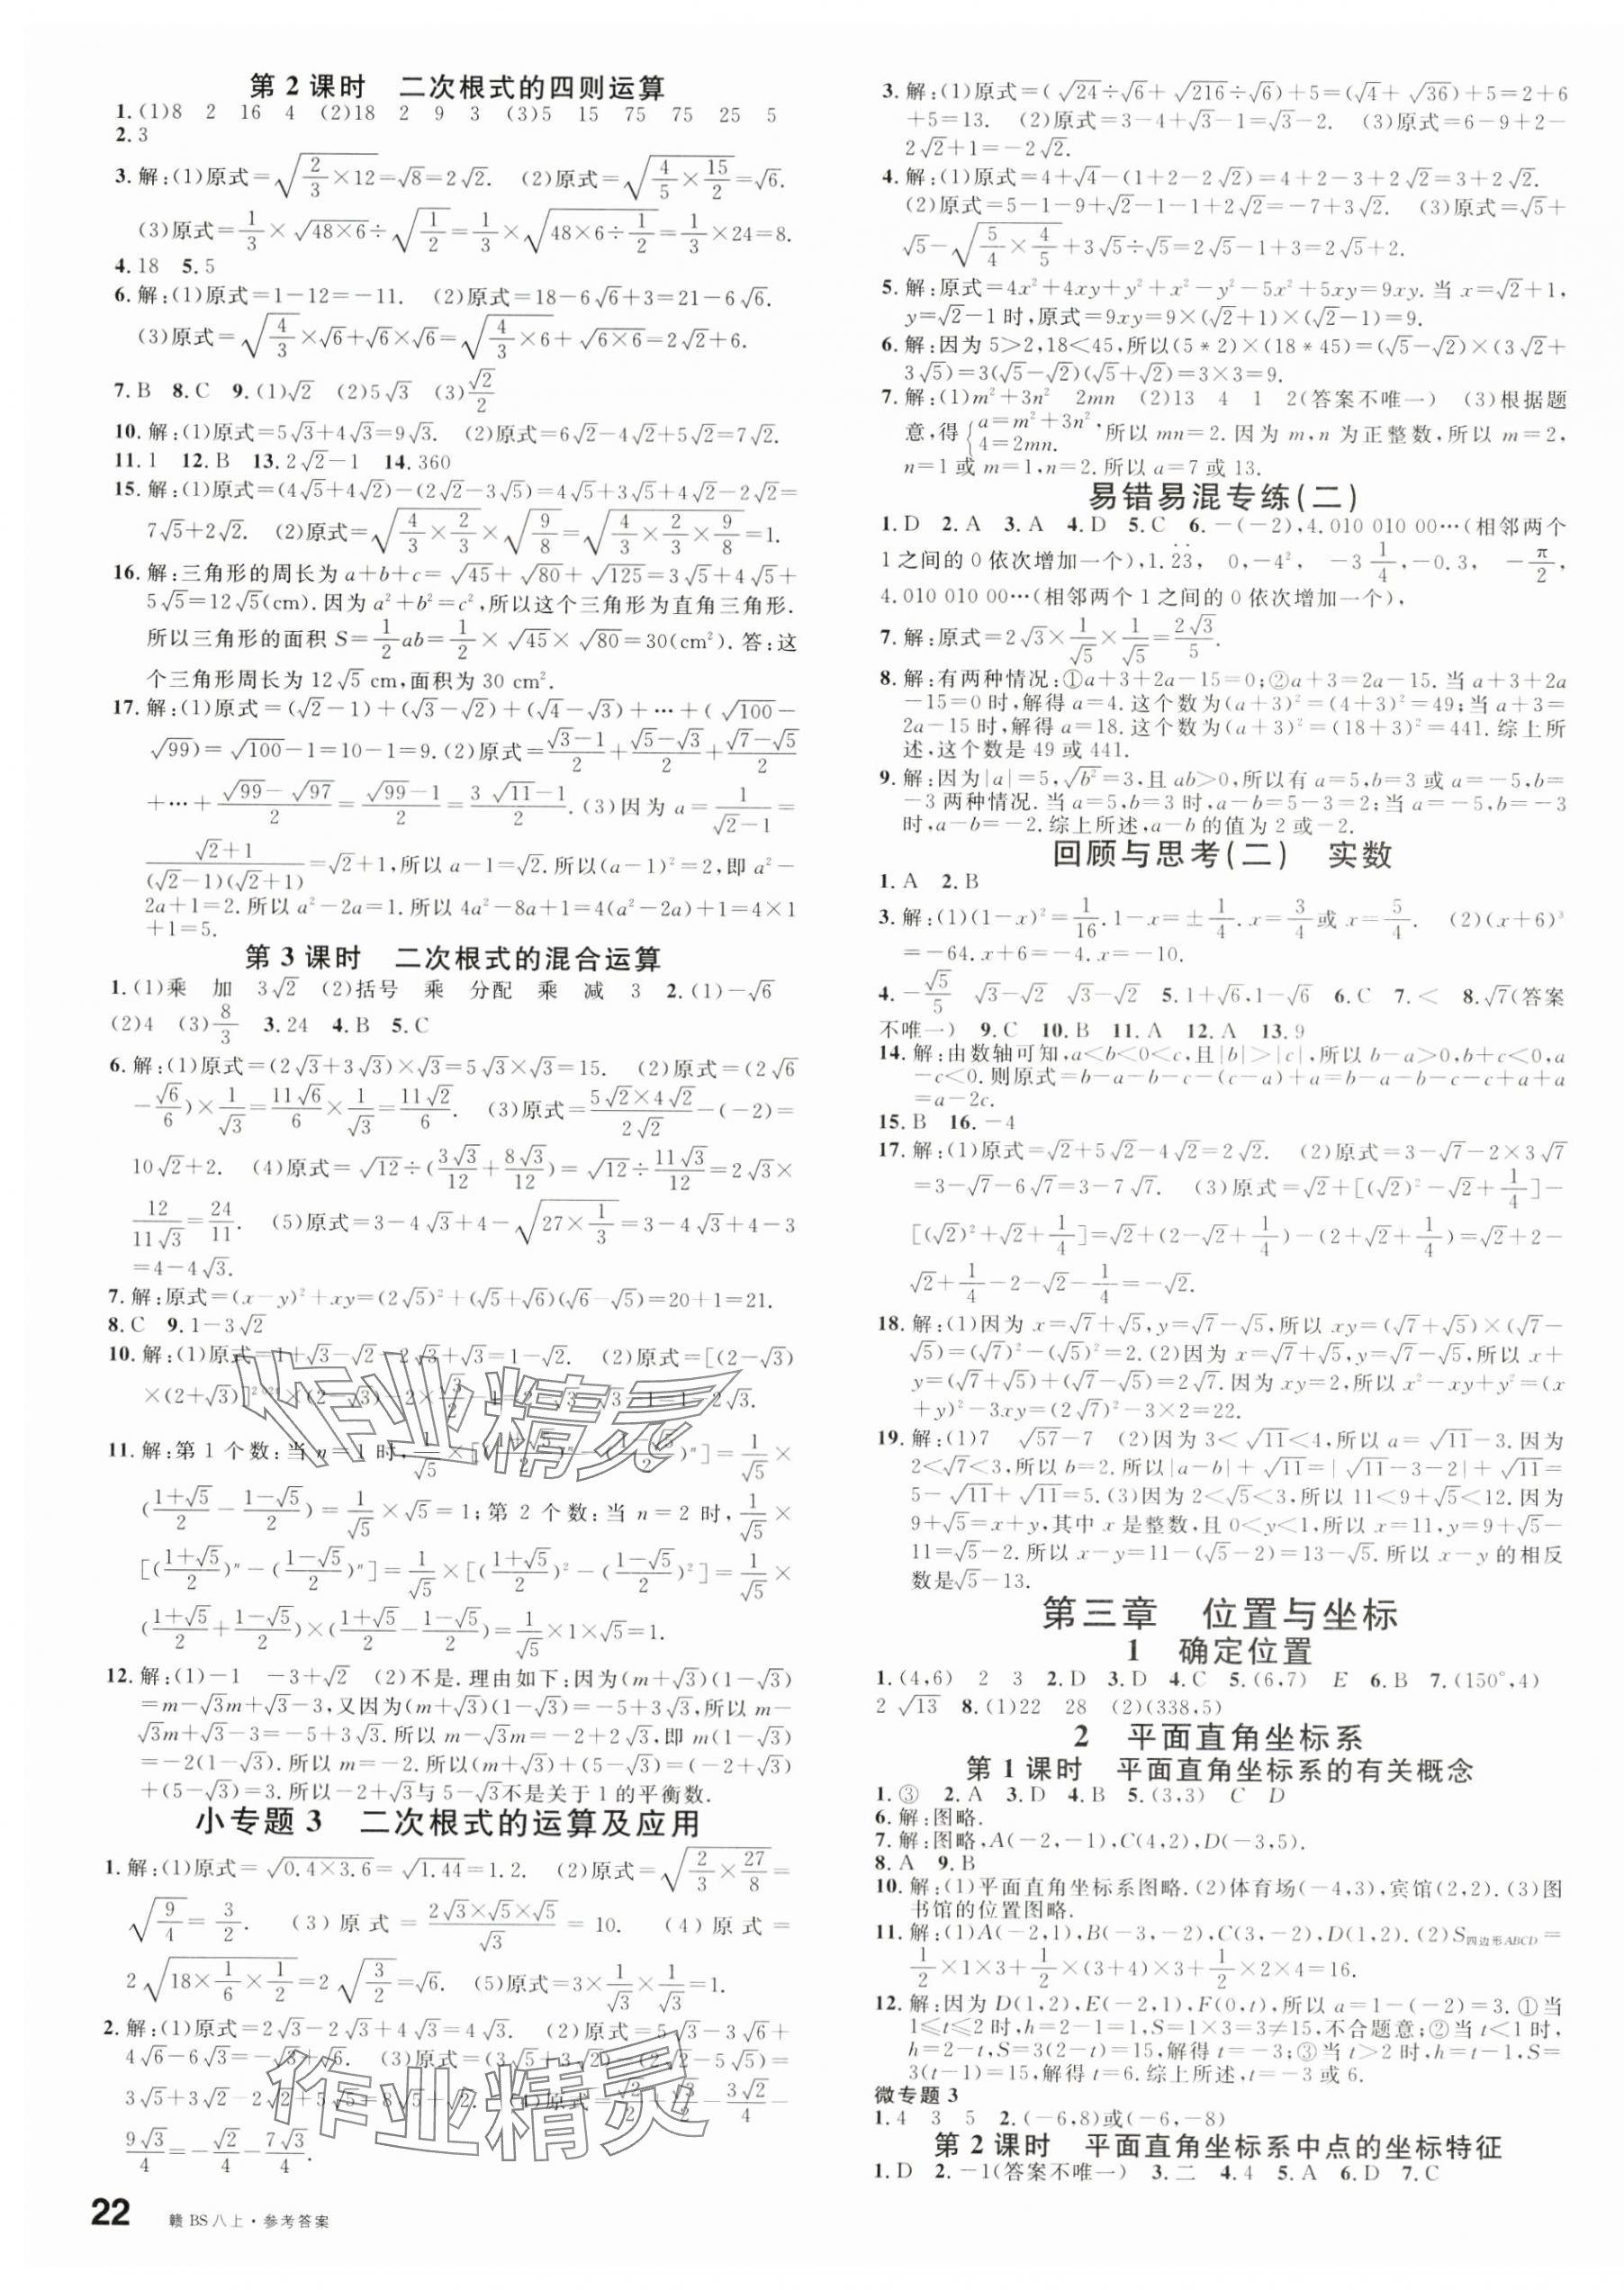 第 2 课时　二次根式的四则运算
1. (1)8　2　16　4　(2)18　2　9　3　(3)5　15　75　75　25　5
2. 3
3. 解:(1)原式=√(2/3×12)=√8=2√2.　(2)原式=√(4/5×15/2)=√6.
(3)原式=1/3×√(48×6)÷√(1/2)=1/3×√(48×6÷1/2)=1/3×24=8.
4. 18　5. 5
6. 解:(1)原式=1-12=-11.　(2)原式=18-6√6+3=21-6√6.
(3)原式=√(4/3)×√6+√6×√6=√(4/3×6)+√(6×6)=2√2+6.
7. B　8. C　9. (1)√2　(2)5√3　(3)√2/2
10. 解:(1)原式=5√3+4√3=9√3.　(2)原式=6√2-4√2+5√2=7√2.
11. 1　12. B　13. 2√2-1　14. 360
15. 解:(1)原式=(4√5+4√2)-(2√2-3√5)=4√5+3√5+4√2-2√2=
7√5+2√2.　(2)原式=√(4/3×2/3)×√(9/8)=√(4/3×2/3×9/8)=1.
16. 解:三角形的周长为 a+b+c=√45+√80+√125=3√5+4√5+
5√5=12√5(cm). 因为 a²+b²=c²,所以这个三角形为直角三角形.
所以三角形的面积 S=1/2ab=1/2×√45×√80=30(cm²). 答:这
个三角形周长为 12√5 cm,面积为 30 cm².
17. 解:(1)原式=(√2-1)+(√3-√2)+(√4-√3)+…+(√100-
√99)=√100-1=10-1=9. (2)原式=(√3-1)/2+(√5-√3)/2+(√7-√5)/2
+…+(√99-√97)/2=(√99-1)/2=(3√11-1)/2. (3)因为 a=1/(√2-1)=
(√2+1)/((√2-1)(√2+1))=√2+1,所以 a-1=√2. 所以(a-1)²=2,即 a²-
2a+1=2. 所以 a²-2a=1. 所以 4a²-8a+1=4(a²-2a)+1=4×1
+1=5.
第 3 课时　二次根式的混合运算
1. (1)乘　加　3√2　(2)括号　乘　分配　乘　减　3　2. (1)-√6
(2)4　(3)8/3　3. 24　4. B　5. C
6. 解:(1)原式=(2√3+3√3)×√3=5√3×√3=15.　(2)原式=(2√6
-√6/6)×1/√3=11√6/6×1/√3=11√2/6.　(3)原式=(5√2×4√2)/(2√2)-(-2)=
10√2+2.　(4)原式=√12÷(3√3/12+8√3/12)=√12÷11√3/12=2√3×
12/(11√3)=24/11.　(5)原式=3-4√3+4-√(27×1/3)=3-4√3+4-3
=4-4√3.
7. 解:原式=(x-y)²+xy=(2√5)²+(√5+√6)(√6-√5)=20+1=21.
8. C　9. 1-3√2
10. 解:(1)原式=1+√3-√2-2√3+√3=1-√2.　(2)原式=[(2-√3)
×(2+√3)]²⁰²¹×(2-√3)-2×√3/2-1=2-√3-√3-1=1-2√3.
11. 解:第 1 个数:当 n=1 时,1/√5×[((1+√5)/2)ⁿ-((1-√5)/2)ⁿ]=1/√5×
((1+√5)/2-(1-√5)/2)=1/√5×√5=1;第 2 个数:当 n=2 时,1/√5×
[((1+√5)/2)ⁿ-((1-√5)/2)ⁿ]=1/√5×[((1+√5)/2)²-((1-√5)/2)²]=1/√5×
((1+√5)/2+(1-√5)/2)×((1+√5)/2-(1-√5)/2)=1/√5×1×√5=1.
12. 解:(1)-1　-3+√2　(2)不是. 理由如下:因为(m+√3)(1-√3)
=m-√3m+√3-3,又因为(m+√3)(1-√3)=-5+3√3,所以 m-
√3m+√3-3=-5+3√3. 所以 m-√3m=-2+2√3,即 m(1-√3)
=-2(1-√3). 所以 m=-2. 所以(m+√3)+(5-√3)=(-2+√3)
+(5-√3)=3. 所以-2+√3与 5-√3不是关于 1 的平衡数.
小专题 3　二次根式的运算及应用
1. 解:(1)原式=√(0.4×3.6)=√1.44=1.2.　(2)原式=√(2/3×27/8)=
√(9/4)=3/2.　(3)原式=(2√3×√5×√5)/√3=10.　(4)原式=
2√(18×1/6×1/2)=2√(3/2)=√6.　(5)原式=3×1/√3×1/√3=1.
2. 解:(1)原式=2√3-2√3+4√3=4√3.　(2)原式=5√3-3√6+
4√6-6√3=-√3+√6.　(3)原式=(3√5+3√2)-(2√2-5√5)=
3√5+3√2-2√2+5√5=8√5+√2.　(4)原式=√2/4-3√3/2-3√2/4-
9√3/4=-√2/4-7√3/4.
22　赣 BS 八上·参考答案
3. 解:(1)原式=(√24÷√6+√216÷√6)+5=(√4+√36)+5=2+6
+5=13.　(2)原式=3-4+√3-1=√3-2.　(3)原式=6-9+2-
2√2+1=-2√2.
4. 解:(1)原式=4+√4-(1+2-2√2)=4+2-3+2√2=3+2√2.
(2)原式=5-1-9+√2-1-1+2√2=-7+3√2.　(3)原式=√5+
√5-√(5/4×4/5)+3√5÷√5=2√5-1+3=2√5+2.
5. 解:原式=4x²+4xy+y²+x²-y²-5x²+5xy=9xy. 当 x=√2+1,
y=√2-1 时,原式=9xy=9×(√2+1)×(√2-1)=9.
6. 解:因为 5>2,18<45,所以(5*2)×(18*45)=(√5-√2)×(3√2+
3√5)=3(√5-√2)(√5+√2)=3×3=9.
7. 解:(1)m²+3n²　2mn　(2)13　4　1　2(答案不唯一)　(3)根据题
意,得{a=m²+3n², 4=2mn. 所以 mn=2. 因为 m,n 为正整数,所以 m=2,
n=1 或 m=1,n=2. 所以 a=7 或 13.
易错易混专练(二)
1. D　2. A　3. A　4. D　5. C　6. -(-2),4.010 010 00…(相邻两个
1 之间的 0 依次增加一个),1.2̇3̇,　0,-4²,　-3 1/4,-0.3,　-π/2,
4.010 010 00…(相邻两个 1 之间的 0 依次增加一个),
7. 解:原式=2√3×1/√5×1/√5=2√3/5.
8. 解:有两种情况:①a+3+2a-15=0;②a+3=2a-15. 当 a+3+2a
-15=0 时,解得 a=4. 这个数为(a+3)²=(4+3)²=49;当 a+3=
2a-15 时,解得 a=18. 这个数为(a+3)²=(18+3)²=441. 综上所
述,这个数是 49 或 441.
9. 解:因为|a|=5,√b²=3,且 ab>0,所以有 a=5,b=3 或 a=-5,b=
-3 两种情况. 当 a=5,b=3 时,a-b=5-3=2;当 a=-5,b=-3
时,a-b=-2. 综上所述,a-b 的值为 2 或-2.
回顾与思考(二)　实数
1. A　2. B
3. 解:(1)(1-x)²=1/16. 1-x=±1/4. x=3/4或 x=5/4.　(2)(x+6)³
=-64. x+6=-4. x=-10.
4. -√5/5　√3-√2　√3-√2　5. 1+√6,1-√6　6. C　7. <　8. √7(答案
不唯一)　9. C　10. B　11. A　12. A　13. 9
14. 解:由数轴可知,a<b<0<c,且|b|>|c|,所以 b-a>0,b+c<0,a
-c<0. 则原式=b-a-b-c-(c-a)+a=b-a-b-c-c+a+a
=a-2c.
15. B　16. -4
17. 解:(1)原式=√2+5√2-4√2=2√2.　(2)原式=3-√7-2×3√7
=3-√7-6√7=3-7√7.　(3)原式=√2+[(√2)²-√2+1/4]-
[(√2)²+√2+1/4]=√2+(2-√2+1/4)-(2+√2+1/4)=√2+2-
√2+1/4-2-√2-1/4=-√2.
18. 解:(1)因为 x=√7+√5,y=√7-√5,所以 xy=(√7+√5)×(√7-
√5)=(√7)²-(√5)²=2. (2)因为 x=√7+√5,y=√7-√5,所以 x+
y=(√7+√5)+(√7-√5)=2√7. 因为 xy=2,所以 x²-xy+y²=(x
+y)²-3xy=(2√7)²-3×2=22.
19. 解:(1)7　√57-7　(2)因为 3<√11<4,所以 a=√11-3. 因为
2<√7<3,所以 b=2. 所以|a-b|+√11=|√11-3-2|+√11=
5-√11+√11=5. (3)因为 2<√5<3,所以 11<9+√5<12. 因为
9+√5=x+y,其中 x 是整数,且 0<y<1,所以 x=11,y=9+√5-
11=√5-2. 所以 x-y=11-(√5-2)=13-√5. 所以 x-y 的相反
数是√5-13.
第三章　位置与坐标
1　确定位置
1. (4,6)　2　3　2. D　3. D　4. C　5. (6,7)　E　6. B　7. (150°,4)
2√13　8. (1)22　28　(2)(338,5)
2　平面直角坐标系
第 1 课时　平面直角坐标系的有关概念
1. ③　2. A　3. D　4. B　5. (3,3)　C　D
6. 解:图略.
7. 解:图略,A(-2,-1),C(4,2),D(-3,5).
8. A　9. B
10. 解:(1)平面直角坐标系图略. (2)体育场(-4,3),宾馆(2,2). (3)图
书馆的位置图略.
11. 解:(1)A(-2,1),B(-3,-2),C(3,-2),D(1,2). (2)S四边形ABCD=
1/2×1×3+1/2×(3+4)×3+1/2×2×4=16.
12. 解:因为 D(1,2),E(-2,1),F(0,t),所以 a=1-(-2)=3. ①当
1≤t≤2 时,h=2-1=1,S=1×3=3≠15,不合题意;②当 t<1 时,
h=2-t,S=3(2-t)=15,解得 t=-3;③当 t>2 时,h=t-1,S=
3(t-1)=15,解得 t=6. 综上所述,t=-3 或 6.
微专题 3
1. 4　3　5　2. (-6,8)或(-6,-8)
第 2 课时　平面直角坐标系中点的坐标特征
1. D　2. -1(答案不唯一)　3. 二　4. 4　5. A　6. D　7. C
作业精灵
作业精灵